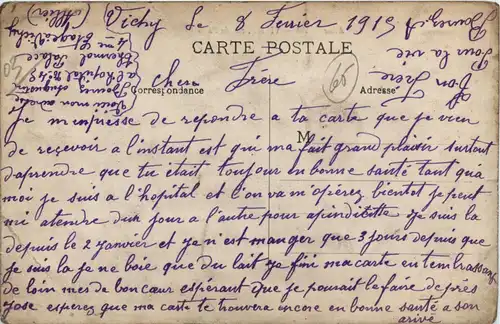 Vichy le 8 Fevrier 1915
CARTE POSTALE
Correspondance
Adresse
M
60
Cher Frere
Je m'inpresse de repondre a ta carte que je vien
de recevoir a l'instant est qui ma fait grand plaisir surtout
d'aprendre que tu était toujour en bonne santé tant qua
moi je suis a l'hopital et l'on va m'opérez bientot je peut
mi atendre d'un jour a l'autre pour apindicitte Je suis la
depuis le 2 janvier et je n'est manger que 3 jours depuis que
je suis la je ne boie que du lait je fini ma carte en tembrassant
de loin mes de bon cœur espérant que je pourait le faire de près
jose esperez que ma carte te trouvera encore en bonne santé a son
arivé
Ton Frere
Pour la vie
a l'hopital
Thermal Palace
Vichy